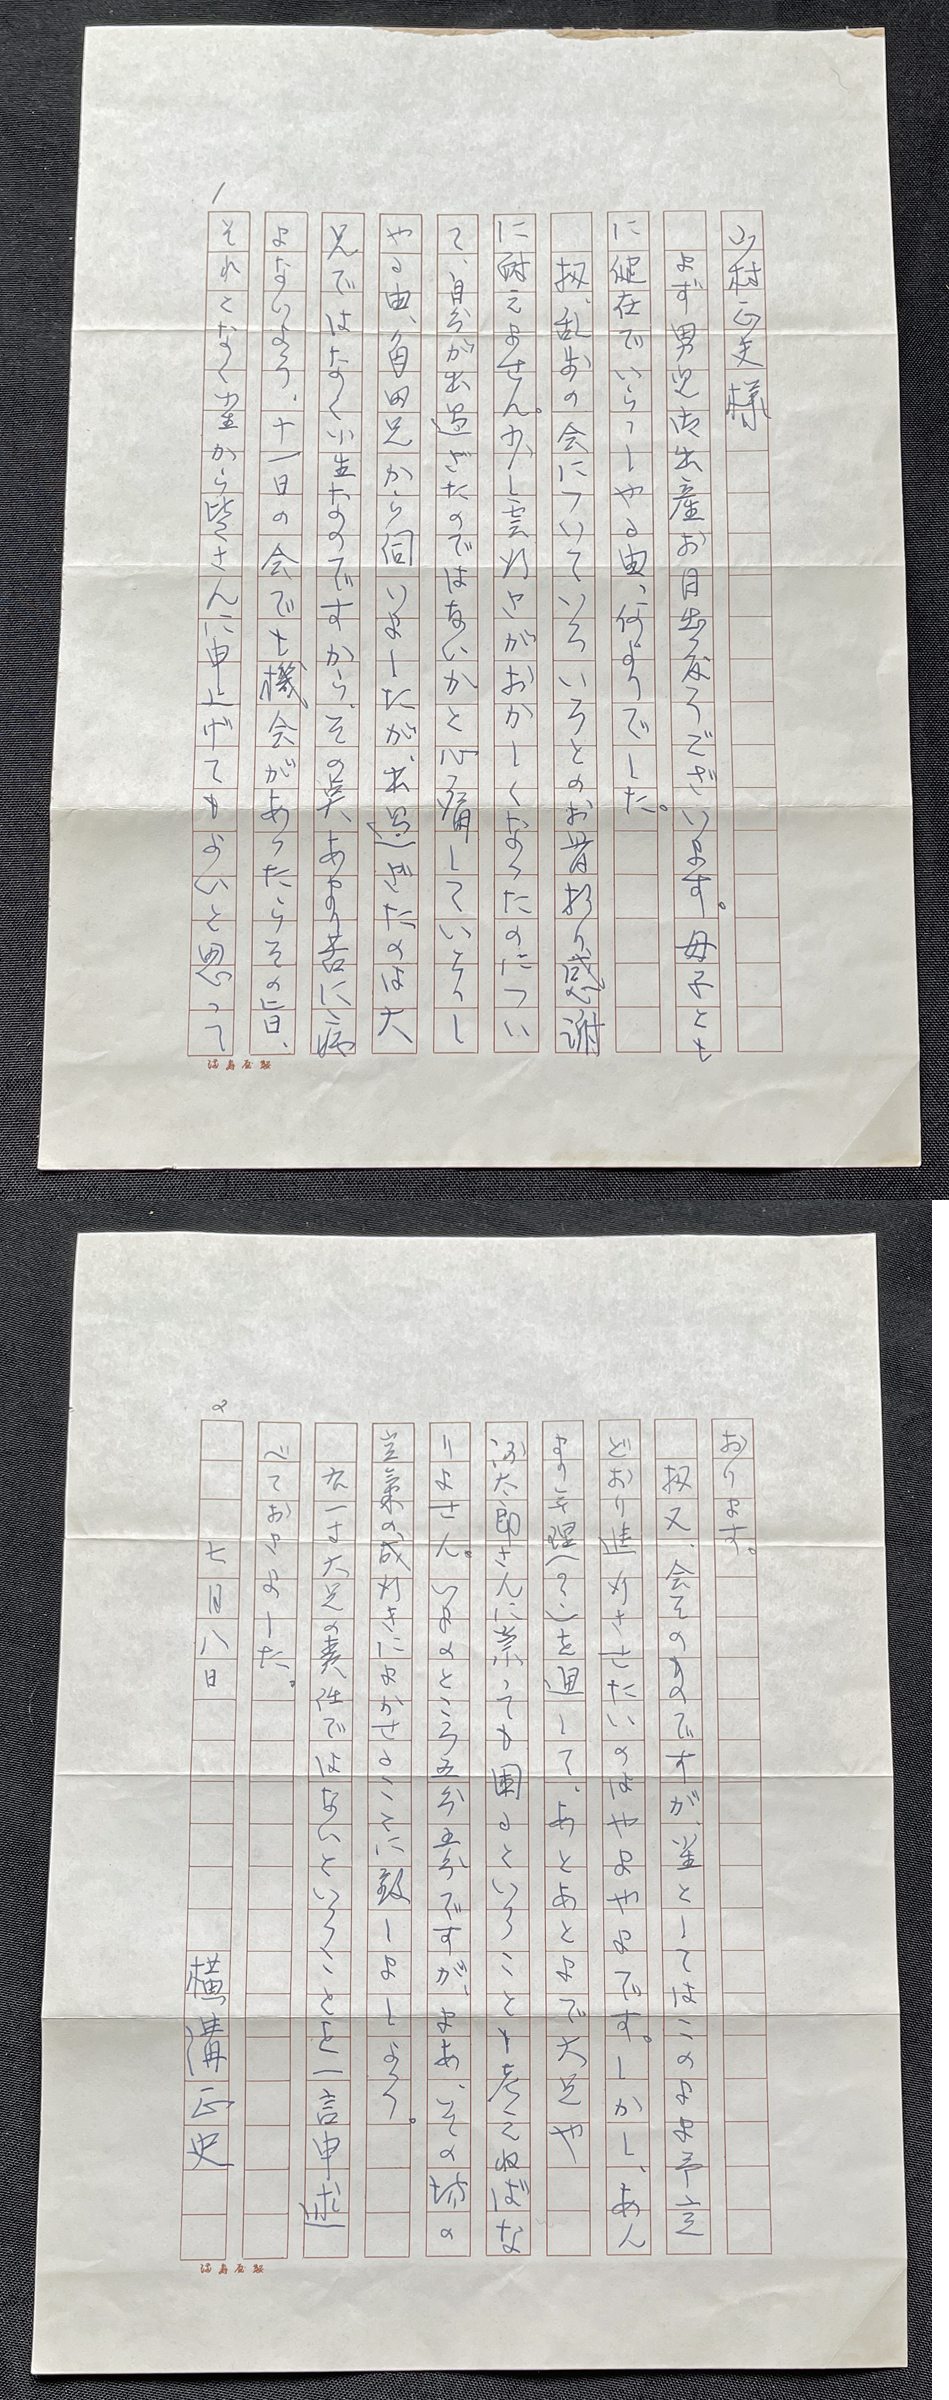 山村正夫様
まず男児御出産お目出度うございます。母子とも
に健在でいらっしゃる由、何よりでした。
扨、乱歩の会についていろいろとのお骨折り感謝
に耐えません。少し雲行きがおかしくなったのについ
て、自分が出過ぎたのではないかと心痛していらっし
やる由、角田兄から伺いましたが、出過ぎたのは大
兄ではなく小生なのですから、その点あまり苦に病
まないよう、十一日の会でも機会があったらその旨、
それとなく小生から皆さんに申上げてもよいと思って
1
満寿屋製
おります。
扨又、会そのものですが、小生としてはこのまま予定
どおり進行させたいのはやまやまです。しかし、あん
まり無理(?)を通して、あとあとまで大兄や
隆太郎さんに祟っても困るということも考えねばな
りません。いまのところ五分五分ですが、まあ、その場の
空気の成行きにまかせることに致しましょう。
ただ一す大兄の責任ではないということを一言申述
べておきました。
七月八日 横溝正史
2
満寿屋製